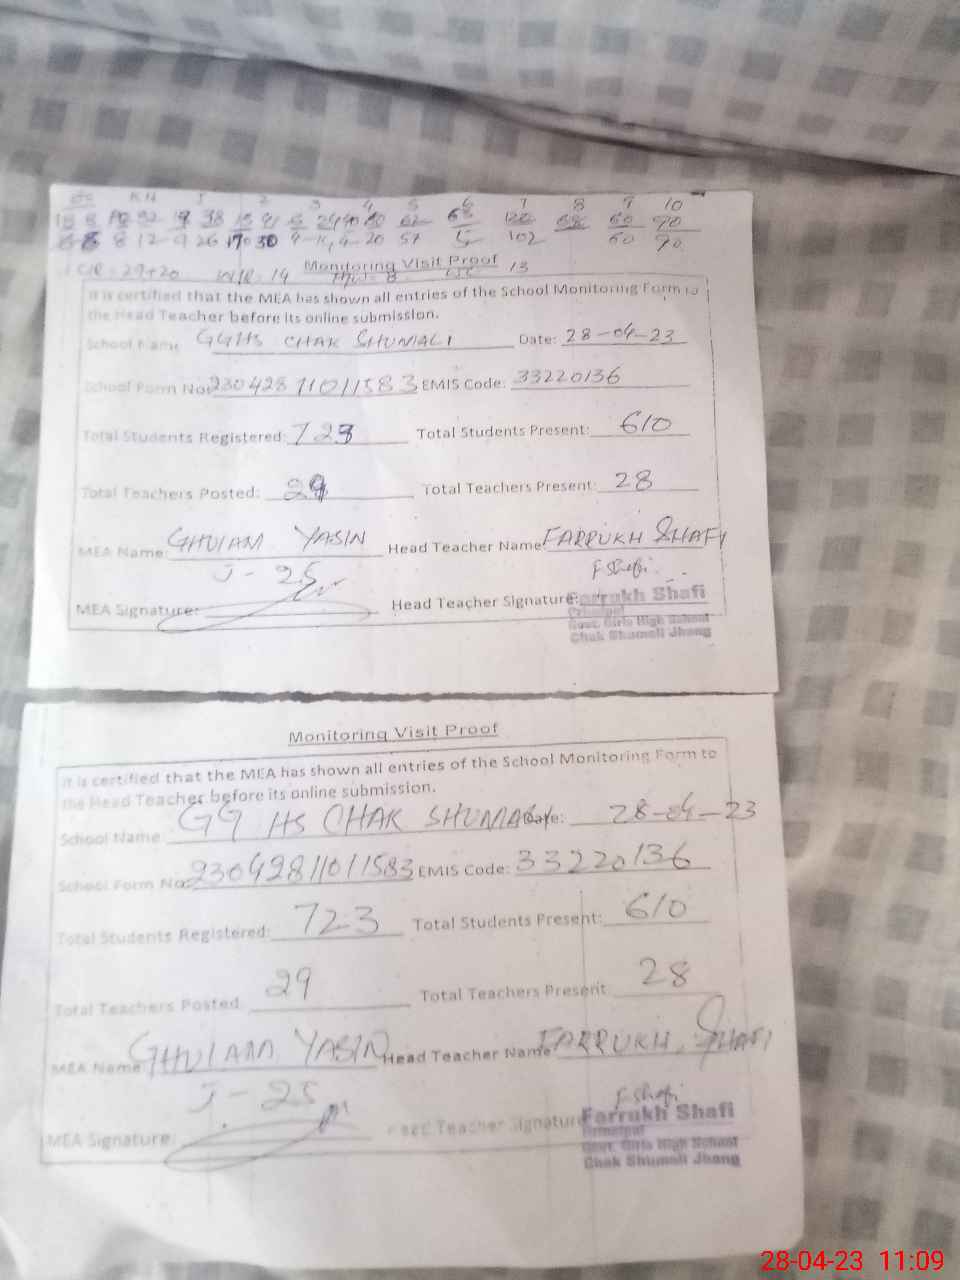 KN 1 2 3 4 5 6 7 8 9 10
62 68 120 60 90
57 5 102 60 90
CIR: 29+20 WR: 14 Monitoring Visit Proof 13
It is certified that the MEA has shown all entries of the School Monitoring Form to
the Head Teacher before its online submission.
School Name GGHS CHAK SHUMALI Date: 28-04-23
School Form No: 23042811011583 EMIS Code: 33220136
Total Students Registered: 723 Total Students Present: 610
Total Teachers Posted: 29 Total Teachers Present: 28
MEA Name: GHULAM YASIN Head Teacher Name: FARRUKH SHAFI
J-25 F Shafi
MEA Signature: Head Teacher Signature: Farrukh Shafi
Principal
Govt. Girls High School
Chak Shumali Jhang
Monitoring Visit Proof
It is certified that the MEA has shown all entries of the School Monitoring Form to
the Head Teacher before its online submission.
School Name GGHS CHAK SHUMALI Date: 28-04-23
School Form No: 23042811011583 EMIS Code: 33220136
Total Students Registered: 723 Total Students Present: 610
Total Teachers Posted: 29 Total Teachers Present: 28
MEA Name: GHULAM YASIN Head Teacher Name FARRUKH SHAFI
J-25 F Shafi
MEA Signature: Head Teacher Signature Farrukh Shafi
Principal
Govt. Girls High School
Chak Shumali Jhang
28-04-23 11:09